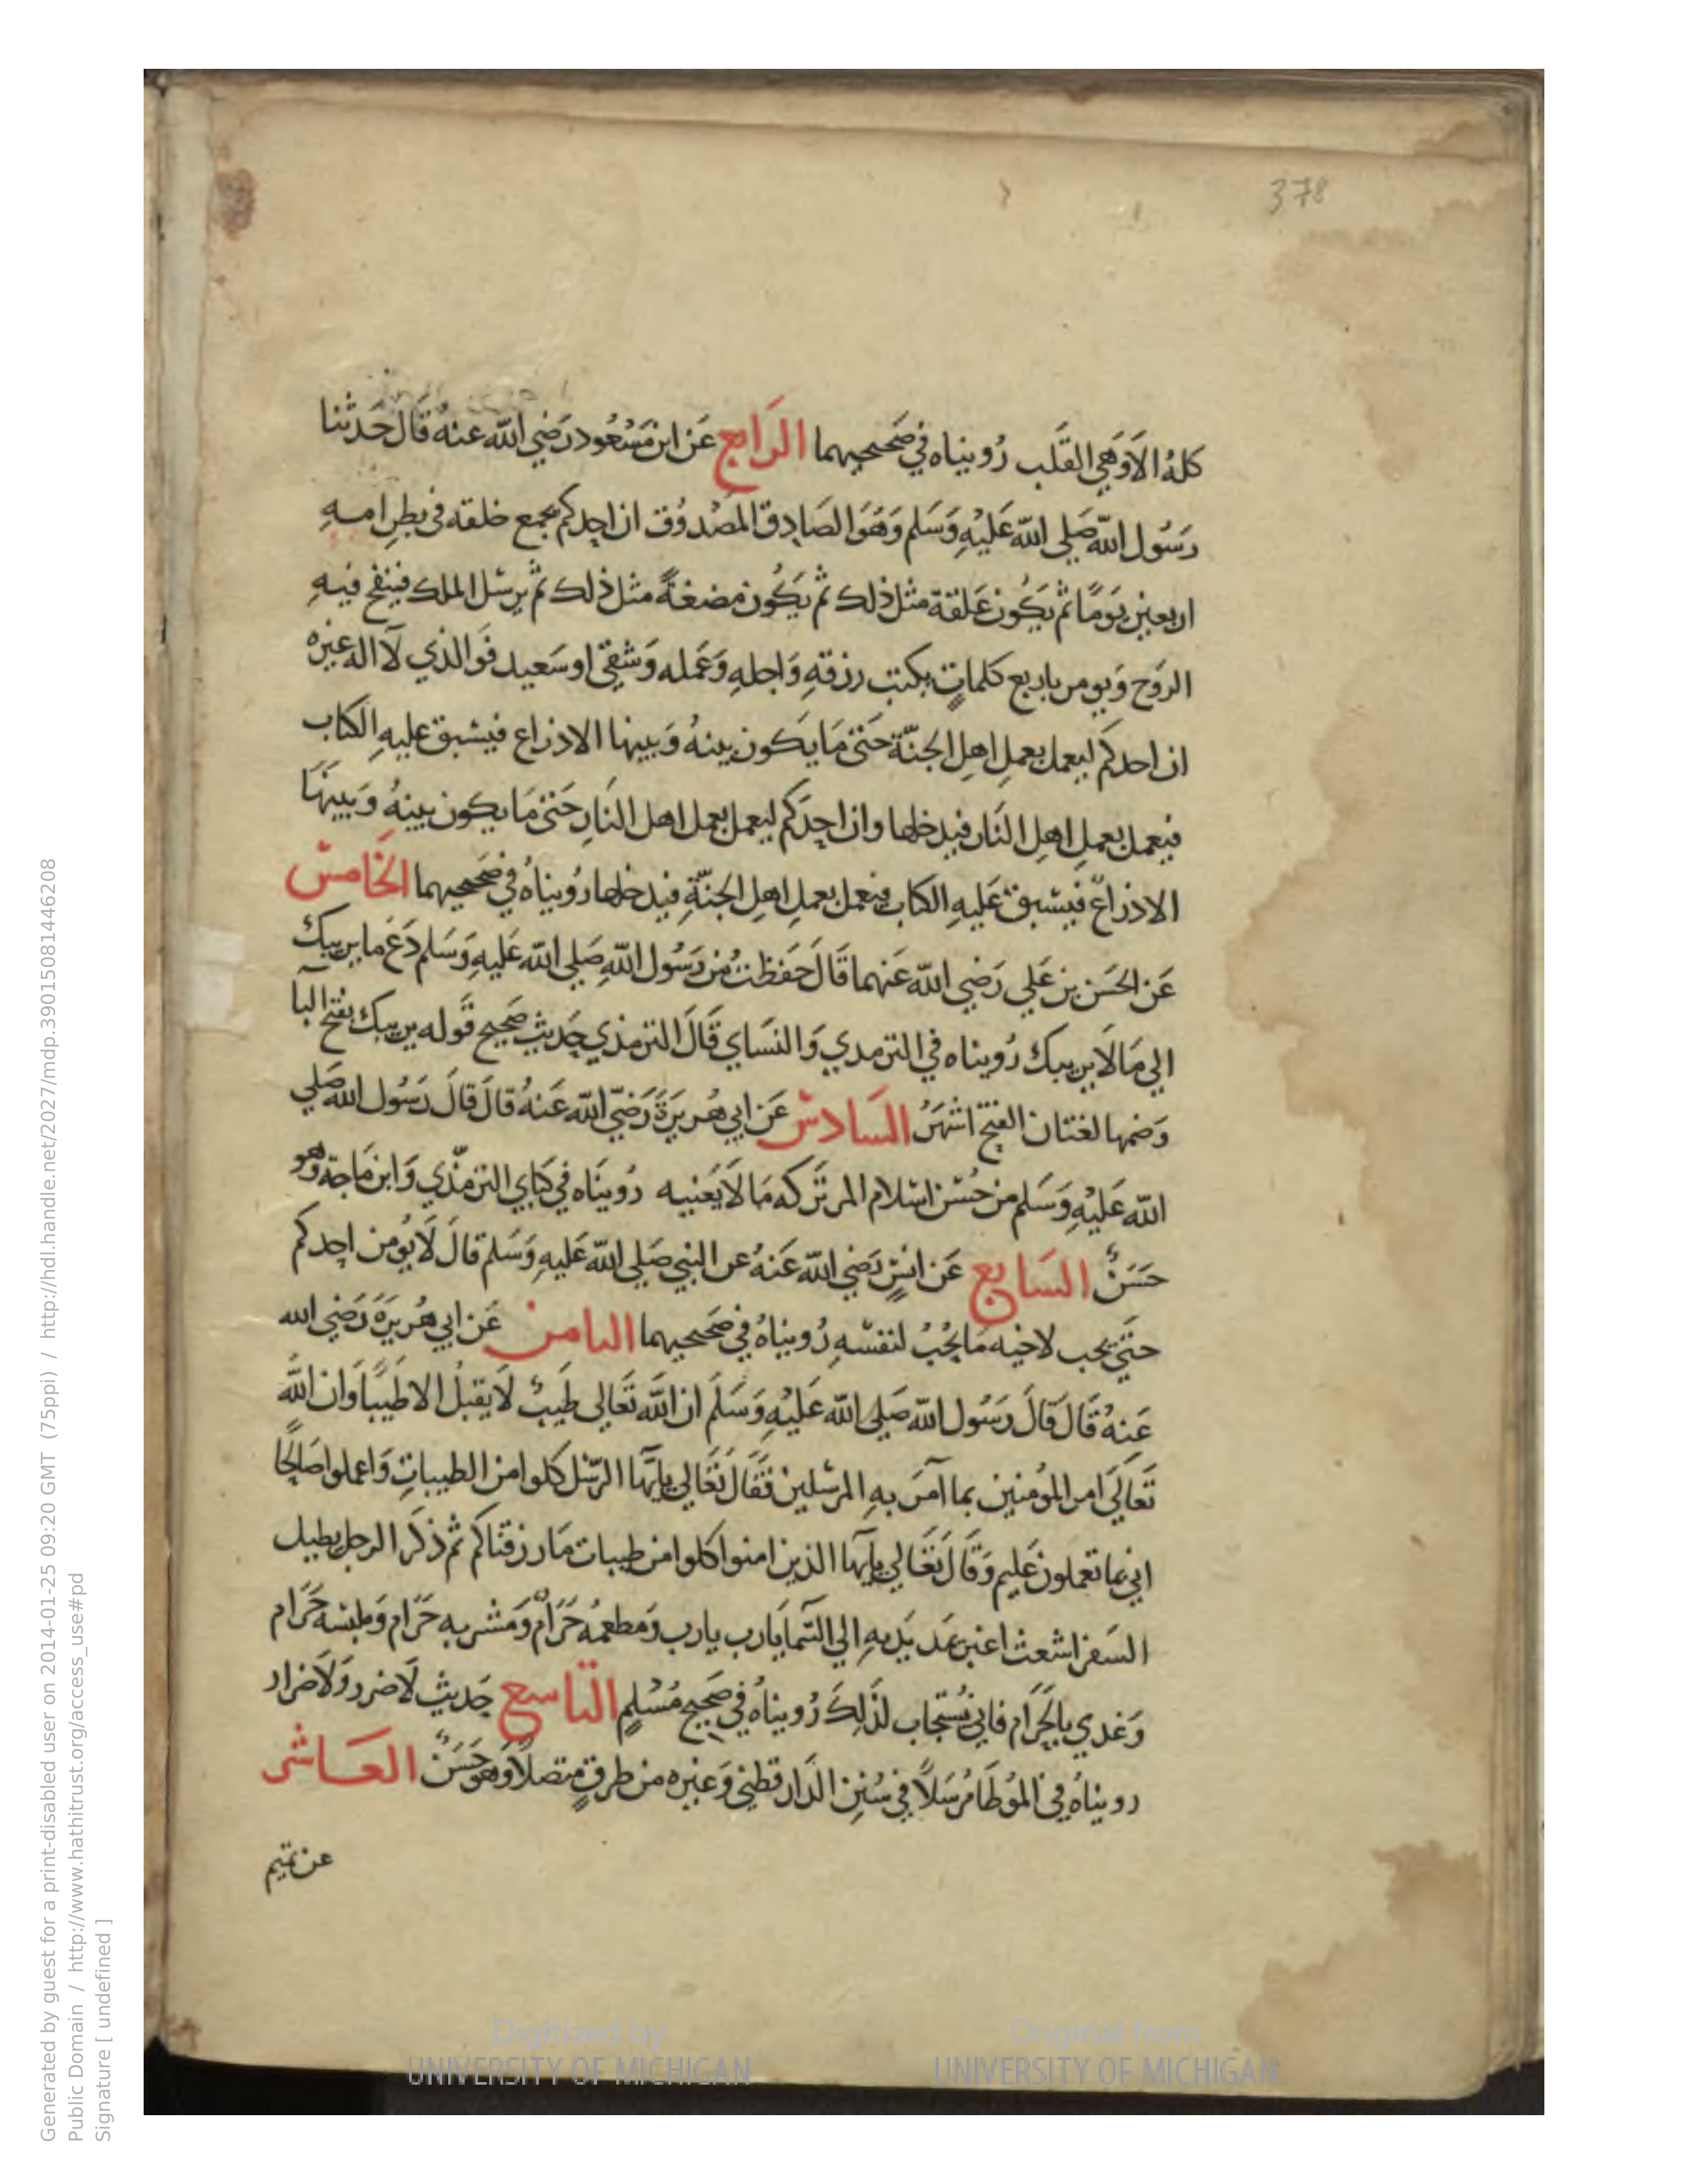 378
كلهُ الاَ وَهِي القَلب رُويناه في صَحيحيهما الرَابع عَن ابن مَسْعُود رَضي الله عنه قَال حَدثنا
رَسُول الله صَلي الله عَليْهِ وَسَلم وَهُوَ الصَادِق المَصْدوُق ان احدكم يجمع خلقه في بطن امهِ
اربعين يَومًا ثم يَكُون عَلقة مثل ذلك ثم يَكُون مضغةً مثل ذلك ثم يرسل الملك فينفخ فيهِ
الروَح وَيومر باربع كلماتٍ بكتب رزقهِ وَاجلهِ وَعَمله وَشقي او سَعيد فَوالذي لاَ اله غيره
ان احدكم ليعمل بعملِ اهلِ الجنّة حَتي مَا يَكون بينهُ وَبينها الا ذراع فيسبق عليهِ الكتاب
فيعمل بعملِ اهلِ النَار فيدخلها وان احِدَكم ليعمل بعمل اهل النَارِ حَتي مَا يكون بينهُ وَبينهَا
الا ذراعٌ فيَسبق عَليهِ الكتاب فيعمل بعملِ اهلِ الجنّةِ فيدخلها رُويناهُ في صَحيحيهما الخَامس
عَن الحَسَن بن عَلي رَضي الله عَنهما قَالَ حَفظتُ من رَسُول اللهِ صَلي الله عَليهِ وَسَلم دَع ما يريبك
الي مَا لاَ يريبك رُويناه في الترمدي وَالنسَاي قَالَ الترمذي حَديث صَحيح قَوله يريبك بفتح اليآ
وَضمها لغتان الفتح اشهَرُ السَادس عَن ابي هُريرَةَ رَضيَ الله عَنهُ قالَ قالَ رَسُول الله صَلي
الله عَليْهِ وَسَلم من حُسْن اسْلام المر تَركه مَا لاَ يَعنيه رُويناه في كتابي الترمذّي وَابن مَاجة وَهو
حَسَنٌ السَابع عَن انسٍ رَضي الله عَنهُ عن النبي صَلي الله عَليهِ وَسَلم قالَ لاَ يُومن احِدكم
حتَي يحب لاخيه مَا يحُبُ لنفسهِ رُويناهُ في صَحيحيهما الثامن عَن ابي هُريرَةَ رَضي الله
عَنِهُ قَال قالَ رَسُول الله صَلي الله عَليْهِ وَسَلمَ ان الله تَعَالي طَيبٌ لاَ يقبلُ الا طَيبًا وَان الله
تَعَالَي امر المؤمنين بما آمَرَ بهِ المرسَلين فقَالَ تَعَالي يايَها الرسُل كلوا من الطيباتِ وَاعملوا صَالحًا
اني بما تعملون عَليم وَقَالَ تعَالي يايَها الذين امنوا كلوا من طيبات مَا رزقناكم ثم ذكَر الرجل يطيل
السَفر اشعث اغبر يمَد يَديهِ الي السَما يَارب يارب وَمطعمهُ حَرَامٌ وَمَشربه حَرَام وَملبسه حَرَام
وَغدي بالحَرَام فاني يُستجَاب لذَلِكَ رُويناهُ في صَحيح مُسْلمٍ التاسع حَديث لاَ ضرر وَلاَ ضرار
رويناهُ في المُوطَا مُرسَلاً في سُننِ الدَار قطني وَغيره من طرقٍ متصلاً وَهوَ حَسَنٌ العَاشر
عن تميم
Generated by guest for a print-disabled user on 2014-01-25 09:20 GMT (75ppi) / http://hdl.handle.net/2027/mdp.39015081446208
Public Domain / http://www.hathitrust.org/access_use#pd
Signature [ undefined ]
Digitized by
UNIVERSITY OF MICHIGAN
Original from
UNIVERSITY OF MICHIGAN